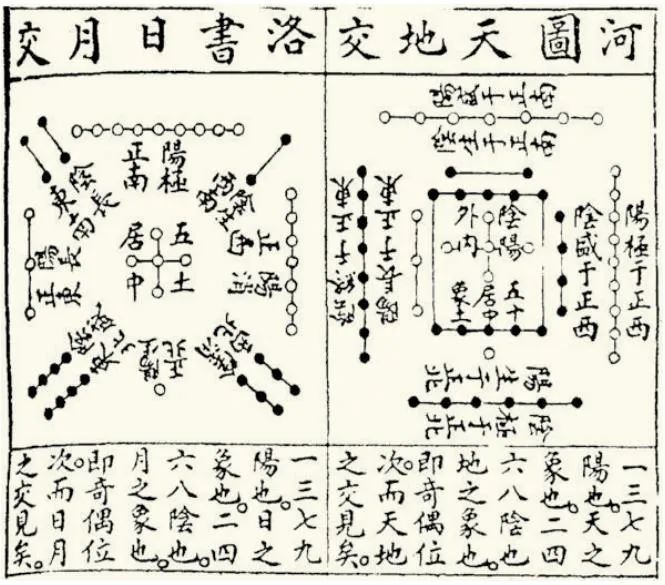 河圖天地交
陽盛于正南
陰生于正南
陽極于正西
陰盛于正西
陰陽
外內
五十
居中
象土
陽長于正東
于正東
陽生于正北
陰極于正北
一三七九
陽也。天之
象也。二四
六八陰也
地之象也。
即奇偶位
次。而天地
之交見矣。
洛書日月交
陽極
正南
陰生
西南
陽消
正西
西北
五土
居中
陽生
正北
東北
陽長
正東
陰長
東南
一三七九
陽也。日之
象也。二四
六八陰也。
月之象也。
即奇偶位
次。而日月
之交見矣。